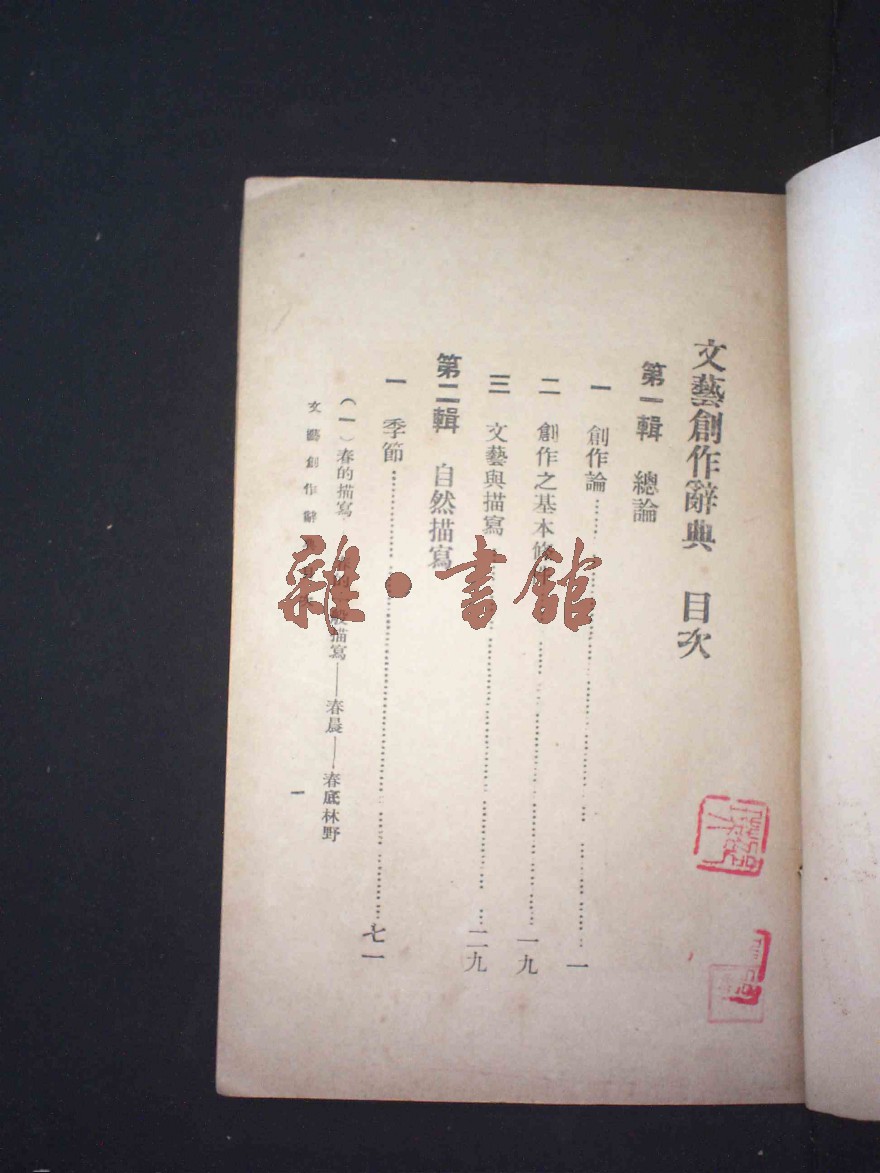 文藝創作辭典 目次
第一輯 總論
一 創作論 一
二 創作之基本修 一九
三 文藝與描寫 二九
第二輯 自然描寫
一 季節 七一
(一)春的描寫 春的一般描寫——春晨——春底林野
文藝創作辭 一
雜·書館